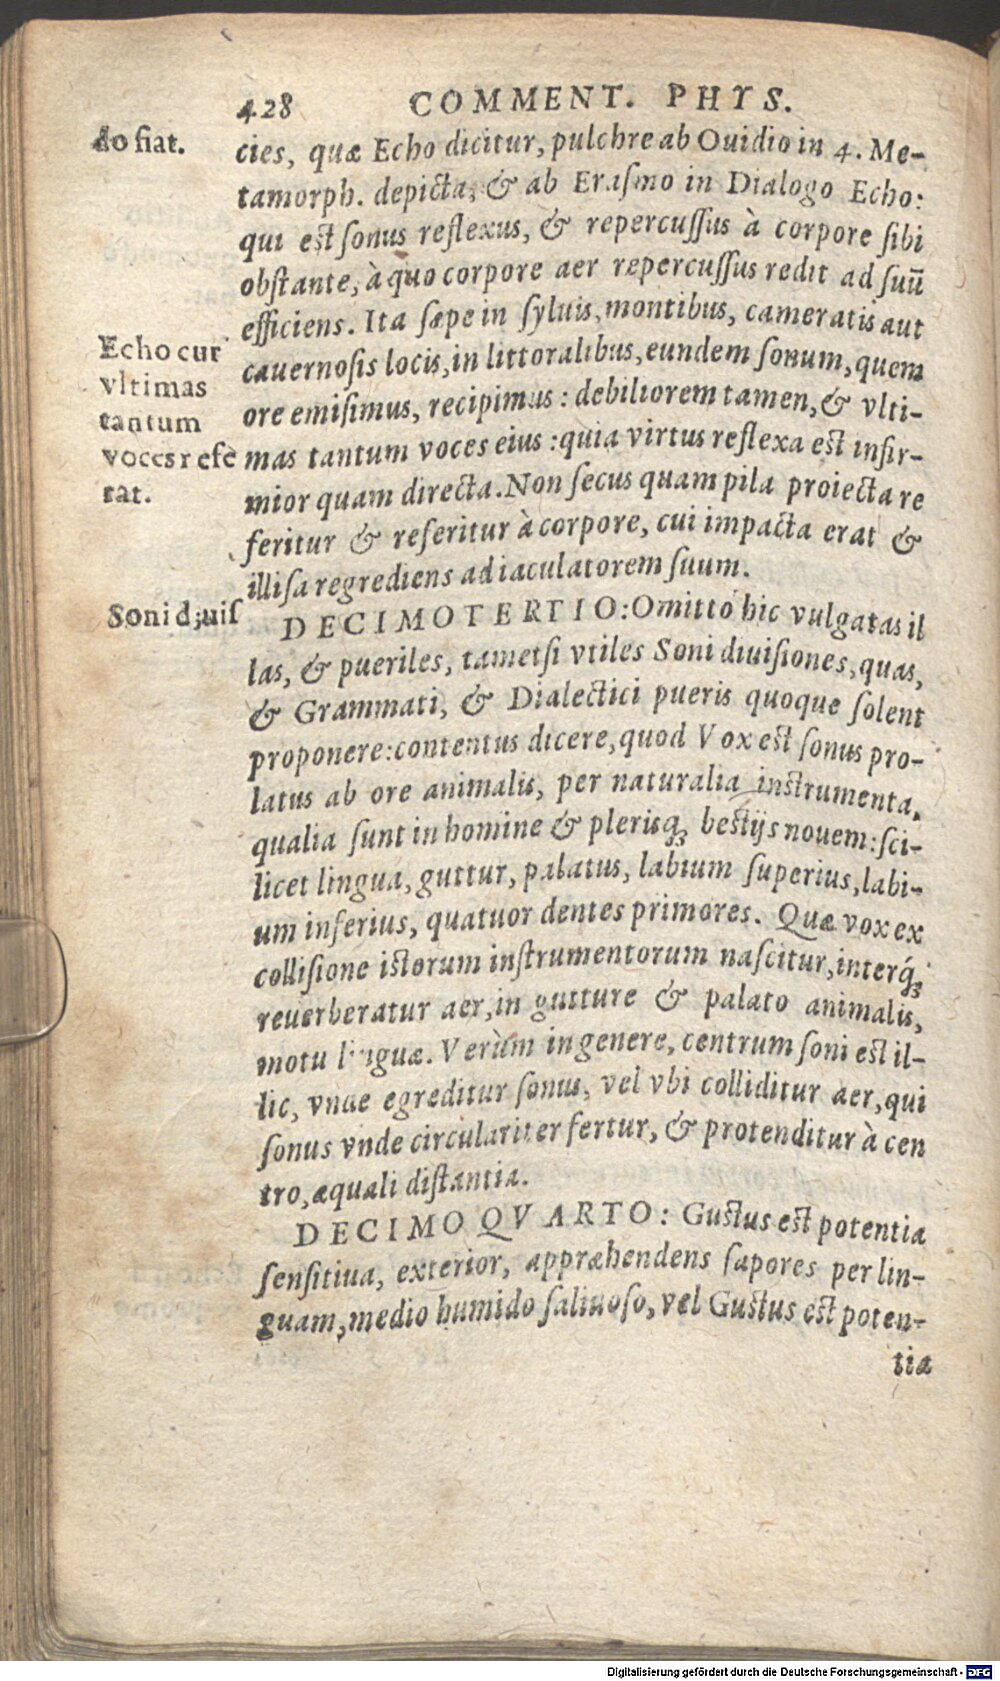 428 COMMENT. PHYS.
do fiat.
cies, quæ Echo dicitur, pulchre ab Ouidio in 4. Me-
tamorph. depicta, & ab Eraſmo in Dialogo Echo:
qui est ſonus reflexus, & repercuſſus à corpore ſibi
obſtante, à quo corpore aer repercuſſus redit ad ſuū
efficiens. Ita ſæpe in ſyluis, montibus, cameratis aut
cauernoſis locis, in littoralibus, eundem ſonum, quem
ore emiſimus, recipimus: debiliorem tamen, & vlti-
mas tantum voces eius: quia virtus reflexa est infir-
mior quam directa. Non ſecus quam pila proiecta re
feritur & referitur à corpore, cui impacta erat &
illiſa regrediens ad iaculatorem ſuum.
Echo cur
vltimas
tantum
voces refe
rat.
Soni diuiſ
DECIMOTERTIO: Omitto hic vulgatas il
las, & pueriles, tametſi vtiles Soni diuiſiones, quas,
& Grammati, & Dialectici pueris quoque ſolent
proponere: contentus dicere, quod Vox est ſonus pro-
latus ab ore animalis, per naturalia instrumenta,
qualia ſunt in homine & plerisq; bestijs nouem: ſci-
licet lingua, guttur, palatus, labium ſuperius, labi-
um inferius, quatuor dentes primores. Quæ vox ex
colliſione istorum inſtrumentorum naſcitur, interq́;
reuerberatur aer, in gutture & palato animalis,
motu linguæ. Verùm in genere, centrum ſoni est il-
lic, vnde egreditur ſonus, vel vbi colliditur aer, qui
ſonus vnde circulariter fertur, & protenditur à cen
tro, æquali diſtantia.
DECIMO QVARTO: Gustus est potentia
ſenſitiua, exterior, appræhendens ſapores per lin-
guam, medio humido ſaliuoſo, vel Gustus est poten-
tia
Digitalisierung gefördert durch die Deutsche Forschungsgemeinschaft - DFG